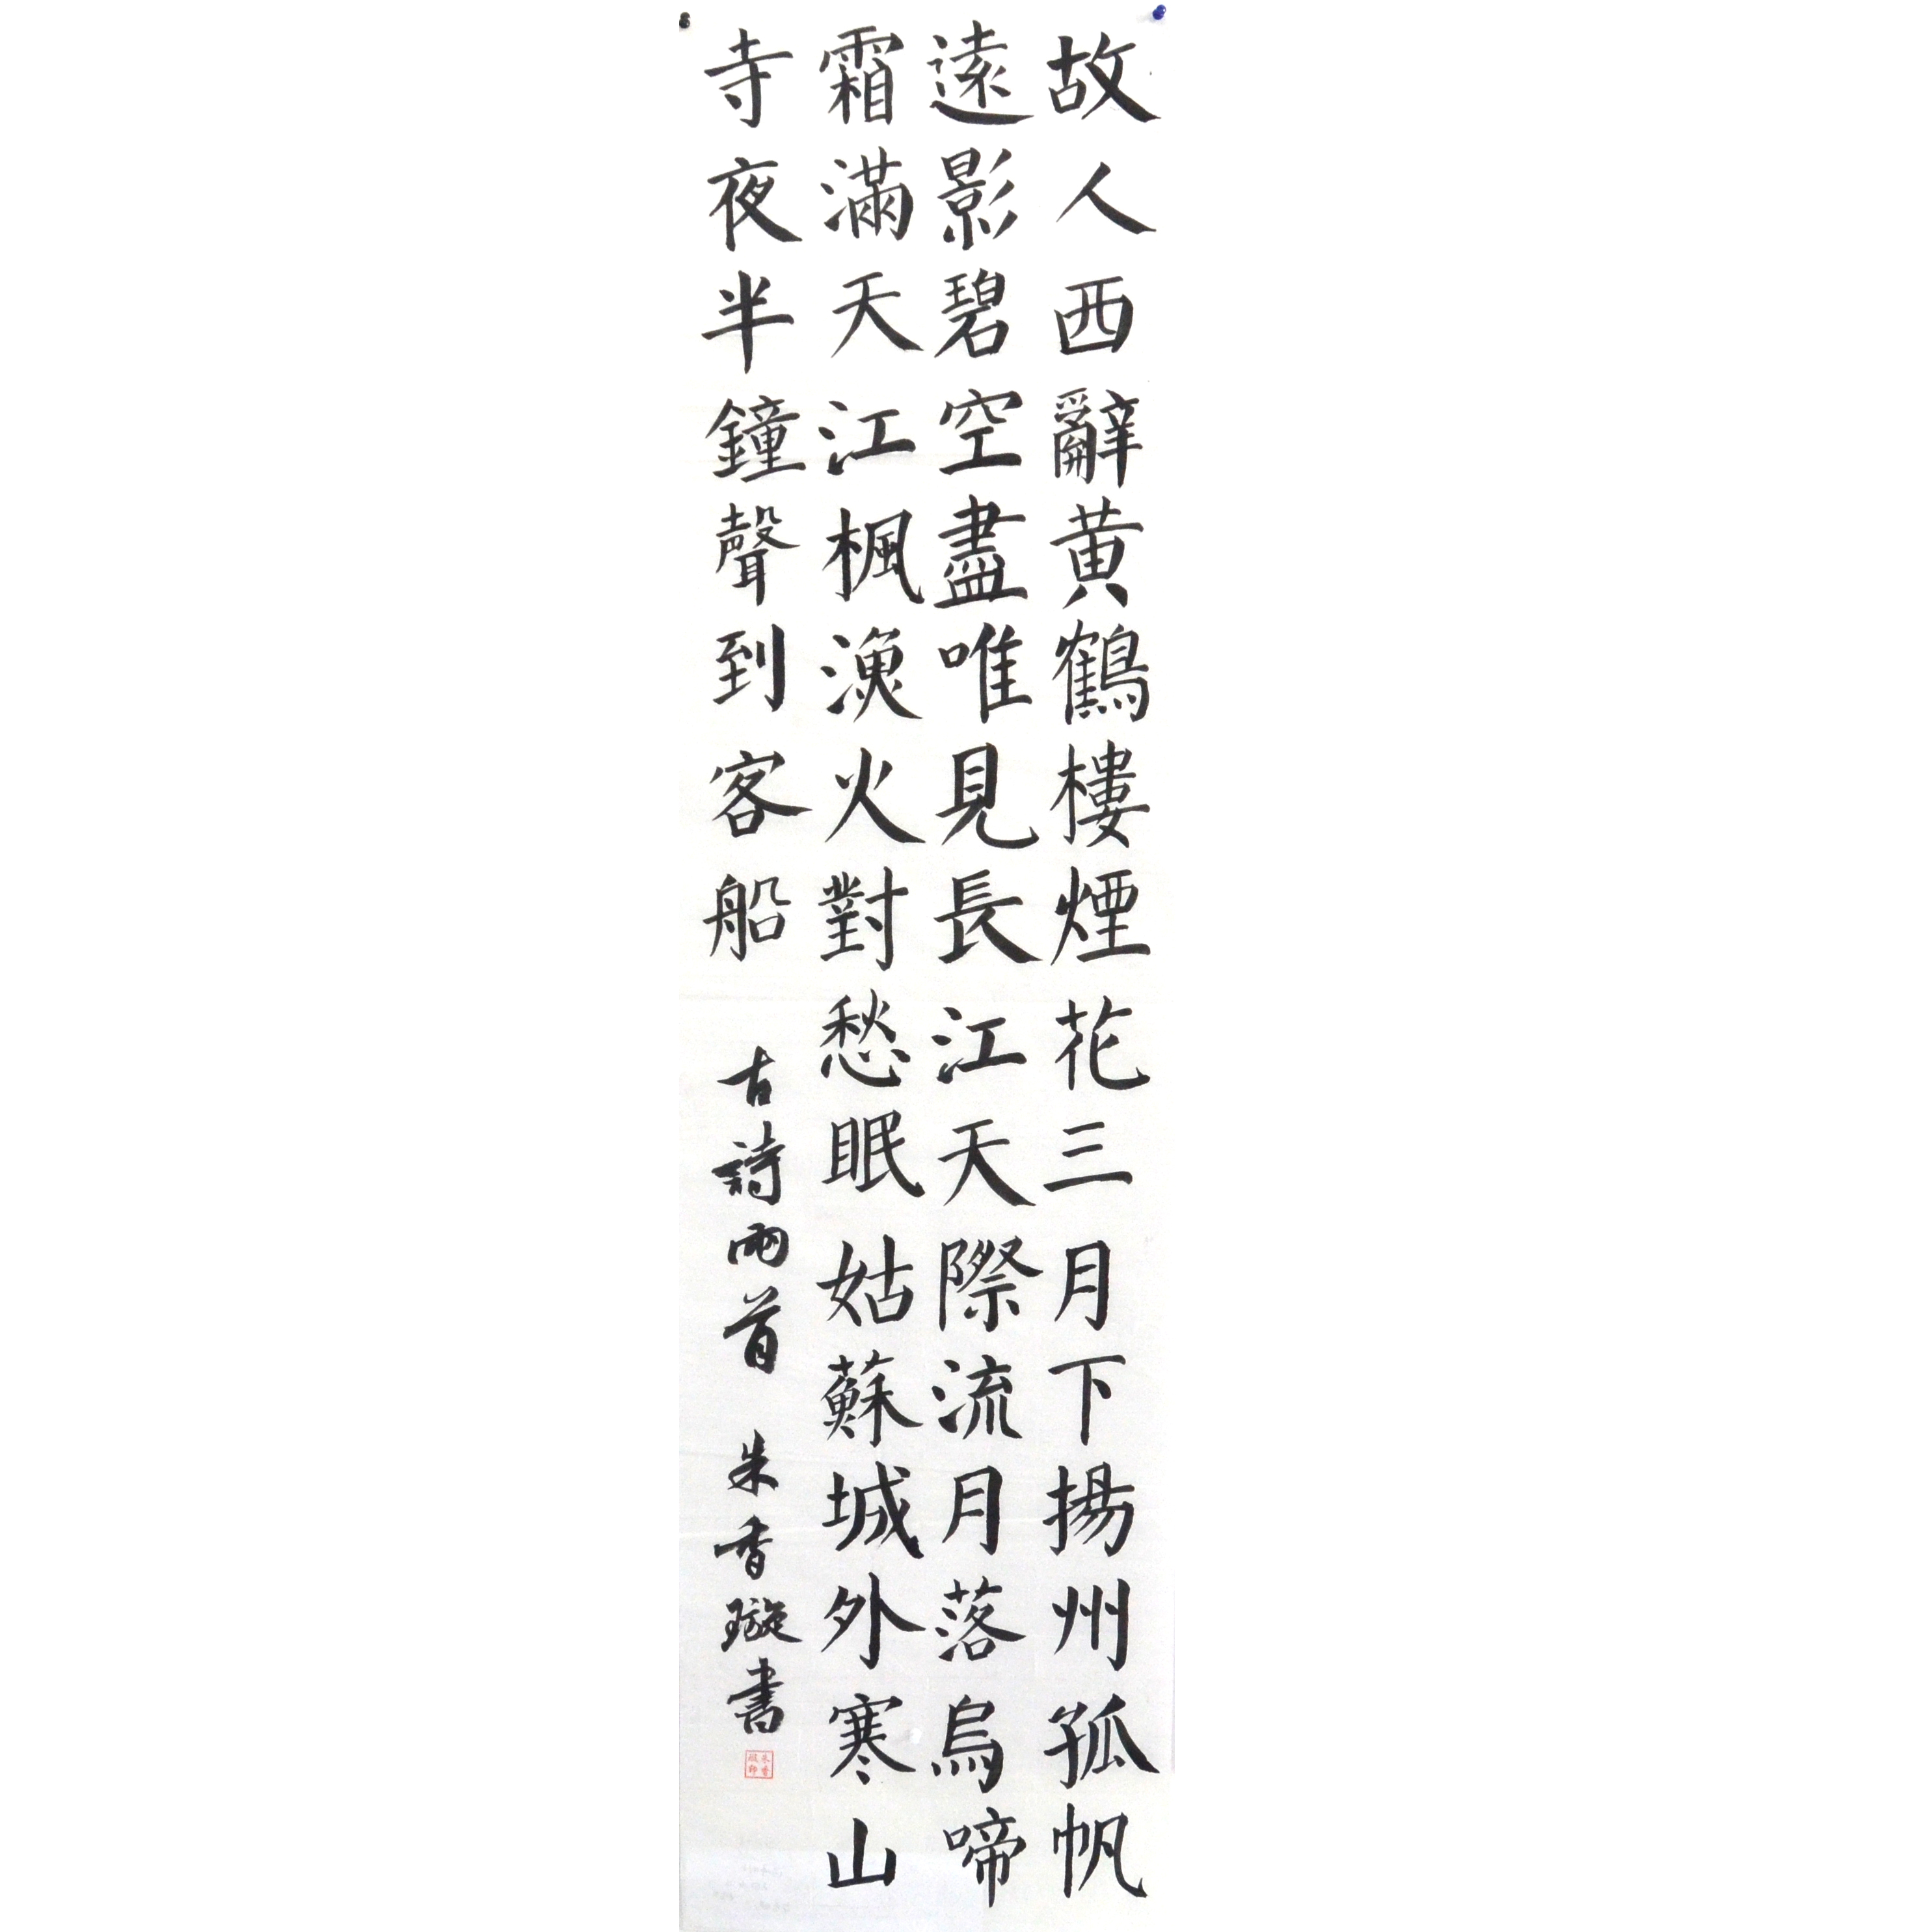 故人西辭黄鶴樓煙花三月下揚州孤帆
遠影碧空盡唯見長江天際流月落烏啼
霜滿天江楓漁火對愁眠姑蘇城外寒山
寺夜半鐘聲到客船
古詩兩首 朱香璇書